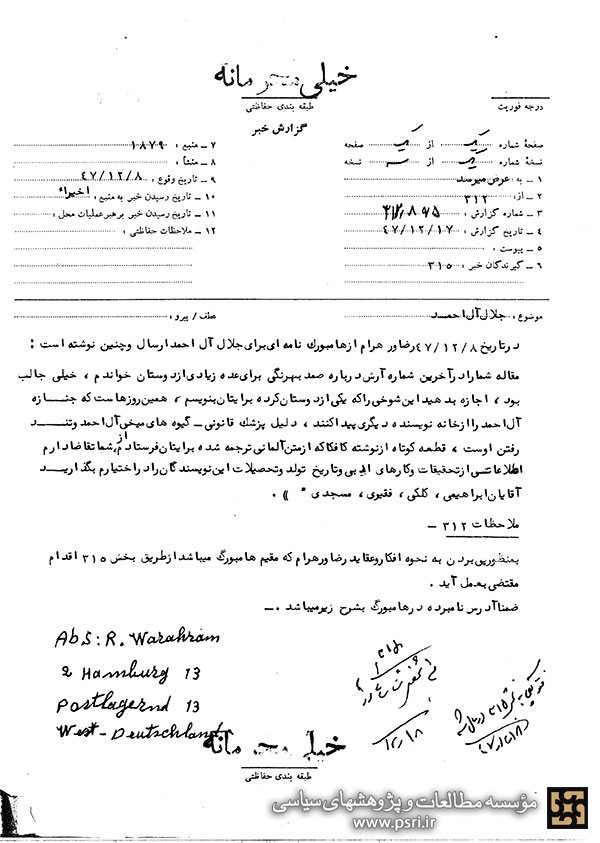 خیلی محرمانه
طبقه بندی حفاظتی
درجه فوریت
گزارش خبر
صفحهٔ شماره یک از یک صفحه
نسخهٔ شماره یک از سه نسخه
۱ ـ به : عرض میرسد
۲ ـ از : ۳۱۲
۳ ـ شماره گزارش :
۴ ـ تاریخ گزارش : ۴۷/۱۲/۱۷
۵ ـ پیوست :
۶ ـ گیرندگان خبر : ۳۱۵
۷ ـ منبع : ۱۸۷۹
۸ ـ منشأ :
۹ ـ تاریخ وقوع : ۴۷/۱۲/۸
۱۰ ـ تاریخ رسیدن خبر به منبع : اخیراً
۱۱ ـ تاریخ رسیدن خبر برهبر عملیات محل :
۱۲ ـ ملاحظات حفاظتی :
موضوع : جلال آل احمد
عطف / پیرو :
در تاریخ ۴۷/۱۲/۸ رضا ورهرام از هامبورگ نامه ای برای جلال آل احمد ارسال و چنین نوشته است :
مقاله شما را در آخرین شماره آرش درباره صمد بهرنگی برای عده زیادی از دوستان خواندم ، خیلی جالب
بود ، اجازه بدهید این شوخی را که یکی از دوستان کرده برایتان بنویسم ، همین روزهاست که جنازه
آل احمد را از خانه نویسنده دیگری پیدا کنند ، دلیل پزشک قانونی ـ گیوه های میخی آل احمد و تند
رفتن اوست ، قطعه کوتاه از نوشته کافکا که از متن آلمانی ترجمه شده برایتان فرستادم از شما تقاضا دارم
اطلاعاتی از تحقیقات و کارهای ادبی و تاریخ تولد و تحصیلات این نویسندگان را در اختیارم بگذارید
آقایان ابراهیمی ، کلکی ، فقیری ، مسجدی " )) .
ملاحظات ۳۱۲ ـ
بمنظور پی بردن به نحوه افکار و عقاید رضا ورهرام که مقیم هامبورگ میباشد از طریق بخش ۳۱۵ اقدام
مقتضی بعمل آید .
ضمناً آدرس نامبرده در هامبورگ بشرح زیر میباشد .ـ
Abs: R. Warahram
2 Hamburg 13
Postlagernd 13
West-Deutschland
خیلی محرمانه
طبقه بندی حفاظتی
مؤسسه مطالعات و پژوهشهای سیاسی
www.psri.ir